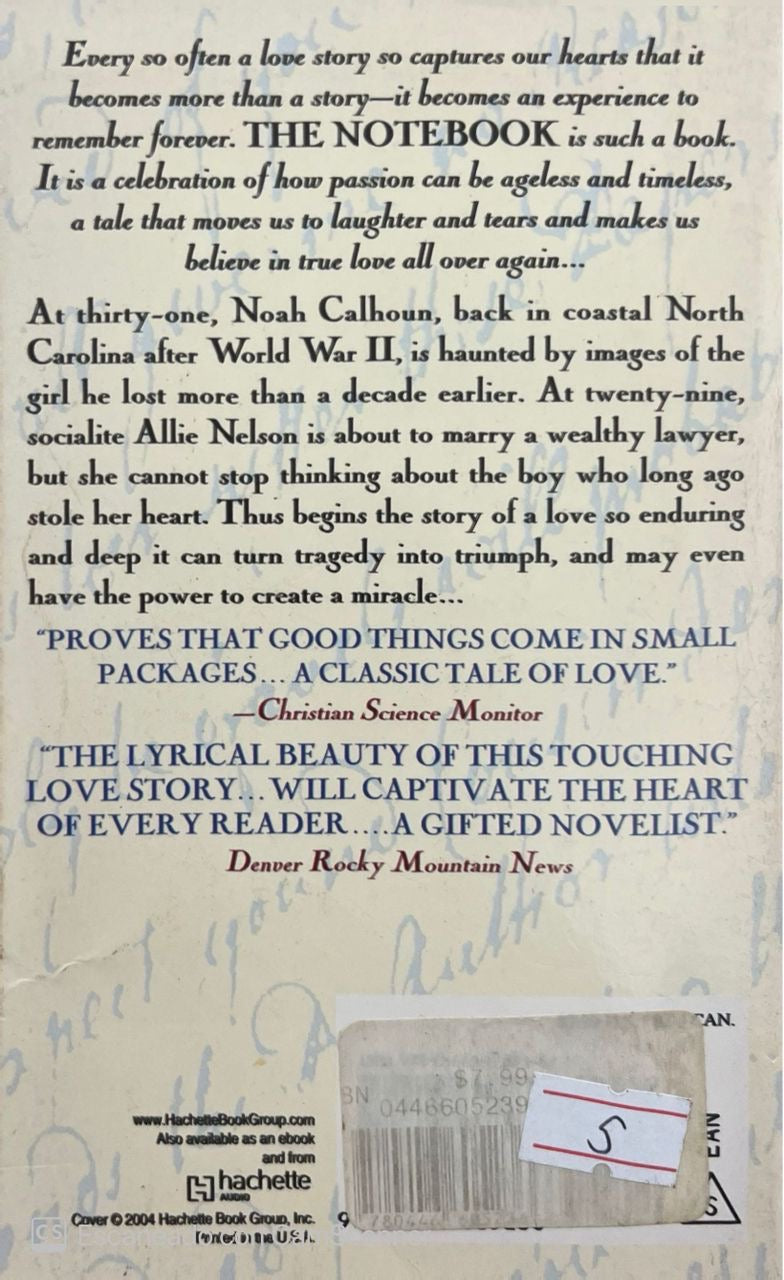 Every so often a love story so captures our hearts that it
becomes more than a story—it becomes an experience to
remember forever. THE NOTEBOOK is such a book.
It is a celebration of how passion can be ageless and timeless,
a tale that moves us to laughter and tears and makes us
believe in true love all over again...
At thirty-one, Noah Calhoun, back in coastal North
Carolina after World War II, is haunted by images of the
girl he lost more than a decade earlier. At twenty-nine,
socialite Allie Nelson is about to marry a wealthy lawyer,
but she cannot stop thinking about the boy who long ago
stole her heart. Thus begins the story of a love so enduring
and deep it can turn tragedy into triumph, and may even
have the power to create a miracle...
"PROVES THAT GOOD THINGS COME IN SMALL
PACKAGES... A CLASSIC TALE OF LOVE."
—Christian Science Monitor
"THE LYRICAL BEAUTY OF THIS TOUCHING
LOVE STORY... WILL CAPTIVATE THE HEART
OF EVERY READER....A GIFTED NOVELIST."
Denver Rocky Mountain News
CAN.
$7.99
0446605239
5
EAN
S
www.HachetteBookGroup.com
Also available as an ebook
and from
hachette
AUDIO
Cover © 2004 Hachette Book Group, Inc.
Printed in the U.S.A.
9
CS